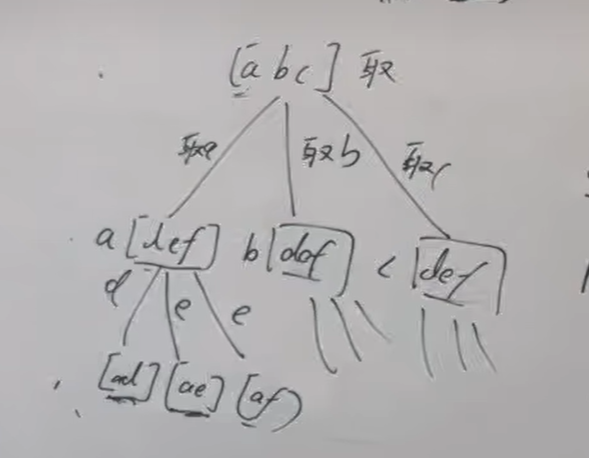 [abc] 取
取a 取b 取c
a[def] b[def] c[def]
d e e
[ad] [ae] [af]